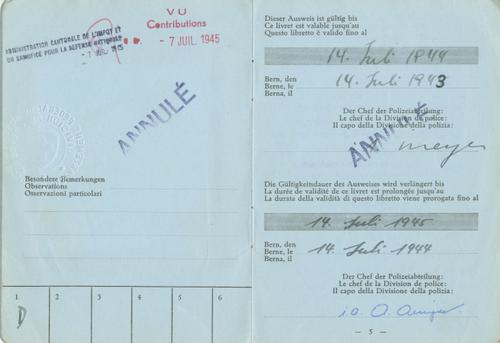 ADMINISTRATION CANTONALE DE L'IMPOT ET
DU SACRIFICE POUR LA DEFENSE NATIONALE
- 7 JUIL. 1945
VU
Contributions
- 7 JUIL 1945
ANNULÉ
Besondere Bemerkungen
Observations
Osservazioni particolari
1 2 3 4 5 6
D
Dieser Ausweis ist gültig bis
Ce livret est valable jusqu'au
Questo libretto è valido fino al
14. Juli 1944
Bern, den
Berne, le
Berna, il
14. Juli 1943
Der Chef der Polizeiabteilung:
Le chef de la Division de police:
Il capo della Divisione della polizia:
ANNULÉ
Meyer
Die Gültigkeitsdauer des Ausweises wird verlängert bis
La durée de validité de ce livret est prolongée jusqu'au
La durata della validità di questo libretto viene prorogata fino al
14. Juli 1945
Bern, den
Berne, le
Berna, il
14. Juli 1944
Der Chef der Polizeiabteilung:
Le chef de la Division de police:
Il capo della Divisione della polizia:
i.a.
- 5 -